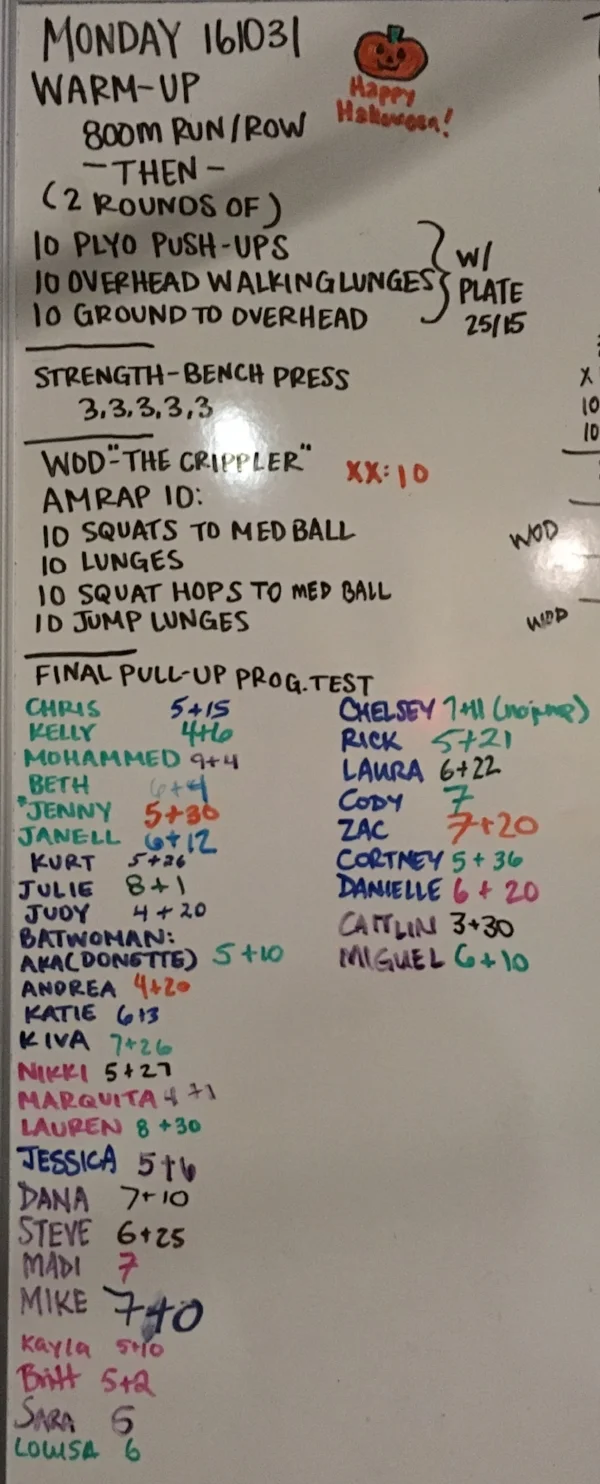 MONDAY 161031
Happy
Halloween!
WARM-UP
800M RUN/ROW
-THEN-
(2 ROUNDS OF)
10 PLYO PUSH-UPS
10 OVERHEAD WALKING LUNGES
10 GROUND TO OVERHEAD
W/
PLATE
25/15
STRENGTH-BENCH PRESS
3,3,3,3,3
WOD-"THE CRIPPLER"
XX:10
AMRAP 10:
10 SQUATS TO MED BALL
10 LUNGES
10 SQUAT HOPS TO MED BALL
10 JUMP LUNGES
FINAL PULL-UP PROG. TEST
CHRIS 5+15
KELLY 4+6
MOHAMMED 9+4
BETH 6+4
*JENNY 5+30
JANELL 6+12
KURT 5+26
JULIE 8+1
JUDY 4+20
BATWOMAN:
AKA(DONETTE) 5+10
ANDREA 4+20
KATIE 6+3
KIVA 7+26
NIKKI 5+27
MARQUITA 4+1
LAUREN 8+30
JESSICA 5+6
DANA 7+10
STEVE 6+25
MADI 7
MIKE 7+0
Kayla 5+10
Britt 5+2
SARA
LOUISA 6
CHELSEY 7+11 (no jump)
RICK 5+21
LAURA 6+22
CODY 7
ZAC 7+20
CORTNEY 5+36
DANIELLE 6+20
CAITLIN 3+30
MIGUEL 6+10
X
10
10
WOD
WOD